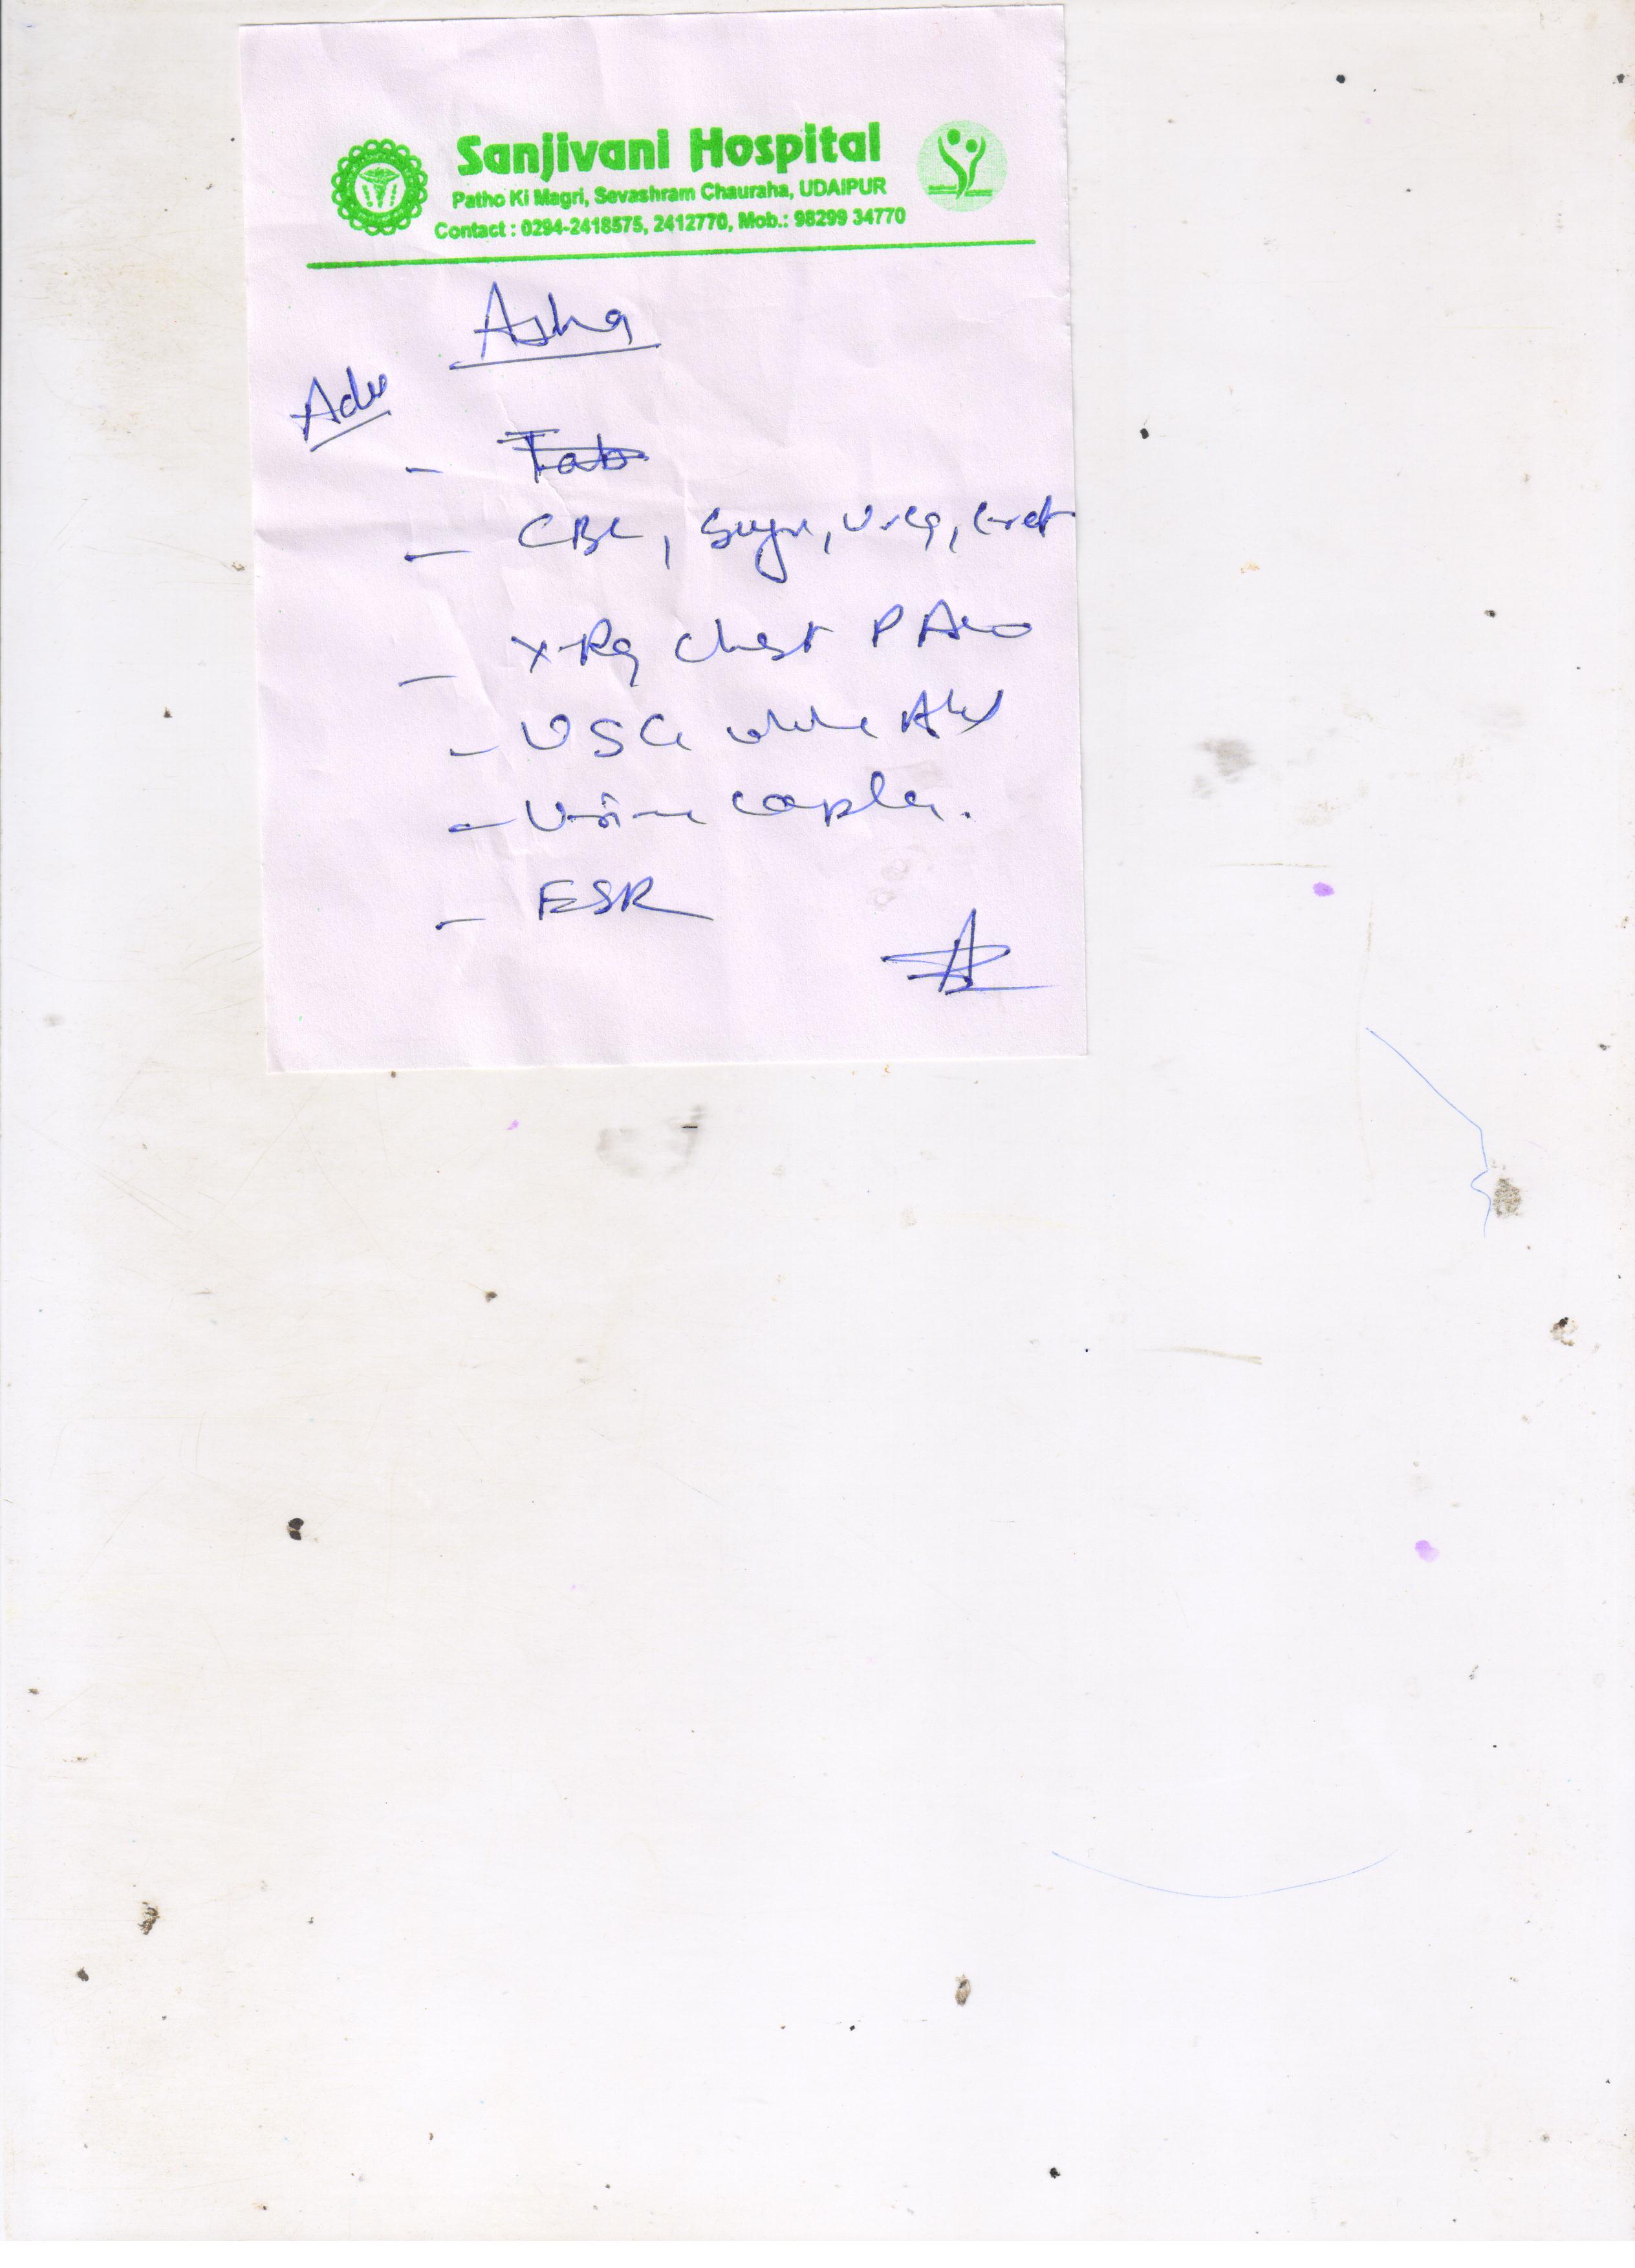 Sanjivani Hospital
Patho Ki Magri, Sevashram Chauraha, UDAIPUR
Contact : 0294-2418575, 2412770, Mob.: 98299 34770
Asha
Adv
- Tab
- CBC, Sugar, Urea, Creat
- X-Ray Chest PA
- USG whole Abd
- Urine complete.
- ESR